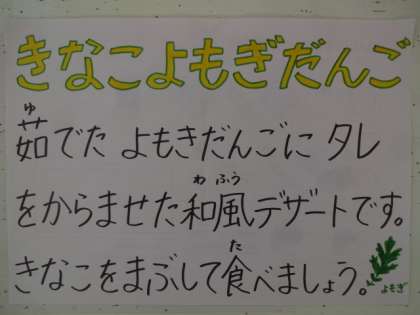 きなこよもぎだんご
茹でた よもぎだんごに タレ
をからませた和風デザートです。
きなこをまぶして食べましょう。
よもぎ